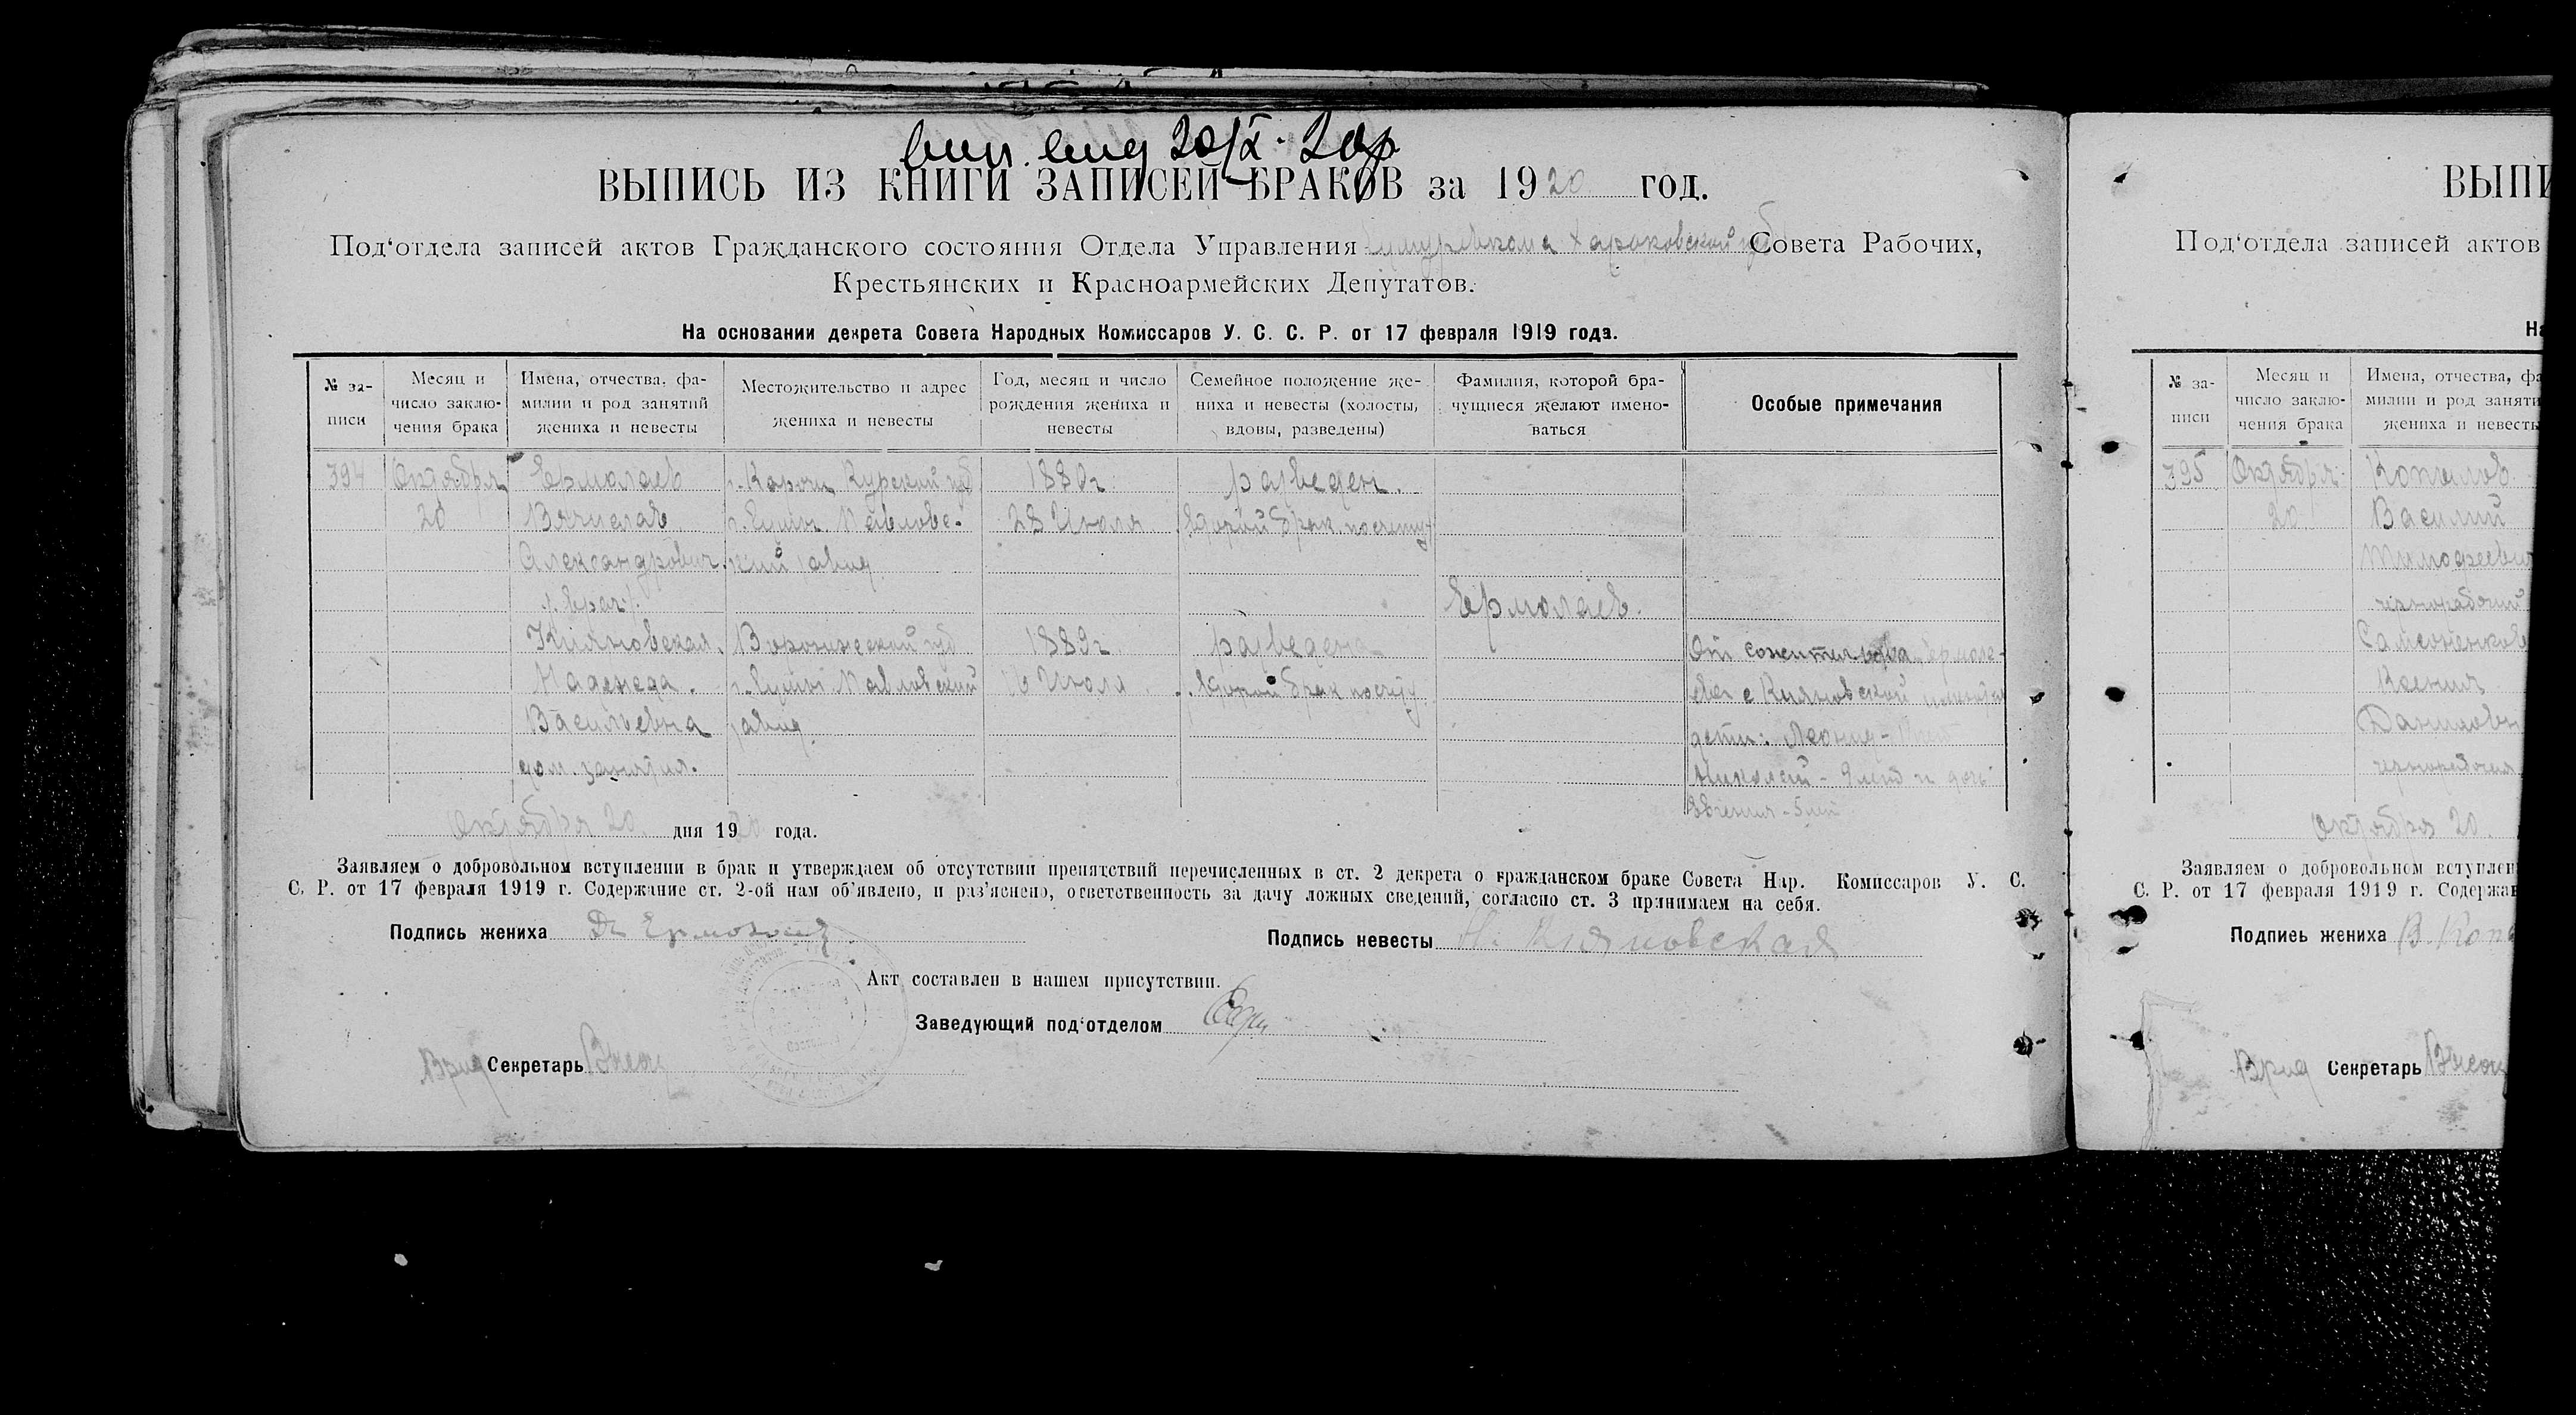 20/X 20 р
ВЫПИСЬ ИЗ КНИГИ ЗАПИСЕЙ БРАКОВ за 1920 год.
Под‘отдела записей актов Гражданского состояния Отдела Управления Харьковской Совета Рабочих,
Крестьянских и Красноармейских Депутатов.
На основании декрета Совета Народных Комиссаров У. С. С. Р. от 17 февраля 1919 года.
№ за-
писи
Месяц и
число заклю-
чения брака
Имена, отчества, фа-
милии и род занятий
жениха и невесты
Местожительство и адрес
жениха и невесты
Год, месяц и число
рождения жениха и
невесты
Семейное положение же-
ниха и невесты (холосты,
вдовы, разведены)
Фамилия, которой бра-
чущиеся желают имено-
ваться
Особые примечания
394
Октября
20
Ермолаев
Вячислав
Александрович
/. врач /.
Кияновская
Надежда
Васильевна
дом. занятия.
г. Короча Курской губ
Павловс-
кий
Воронежской губ
Павловский
1880 г.
28 Июля
1889 г.
Июля
разведен.
второй брак по счету
разведена
второй брак по счету
Ермолаев.
От сожительства Ермола-
ева с Кияновской имеются
дети: Леонид -
Николай - 9 лет и дочь
Евгения - 5 лет
Октября 20 дня 1920 года.
Заявляем о добровольном вступлении в брак и утверждаем об отсутствии препятствий перечисленных в ст. 2 декрета о гражданском браке Совета Нар. Комиссаров У. С.
С. Р. от 17 февраля 1919 г. Содержание ст. 2-ой нам об’явлено, и раз’яснено, ответственность за дачу ложных сведений, согласно ст. 3 принимаем на себя.
Подпись жениха
Подпись невесты Н. Кияновская
Акт составлен в нашем присутствии.
Заведующий под‘отделом
Врид Секретарь
ВЫПИ
Под‘отдела записей актов
На
№ за-
писи
Месяц и
число заклю-
чения брака
Имена, отчества, фа
милии и род заняти
жениха и невесты
395
Октября
20
Копылов
Василий
Тимофеевич
чернорабочий
Ксения
Даниловн
чернорабочая
Октября 20
Заявляем о добровольном вступлен
С. Р. от 17 февраля 1919 г. Содержан
Подпись жениха В. Коп
Врид Секретарь